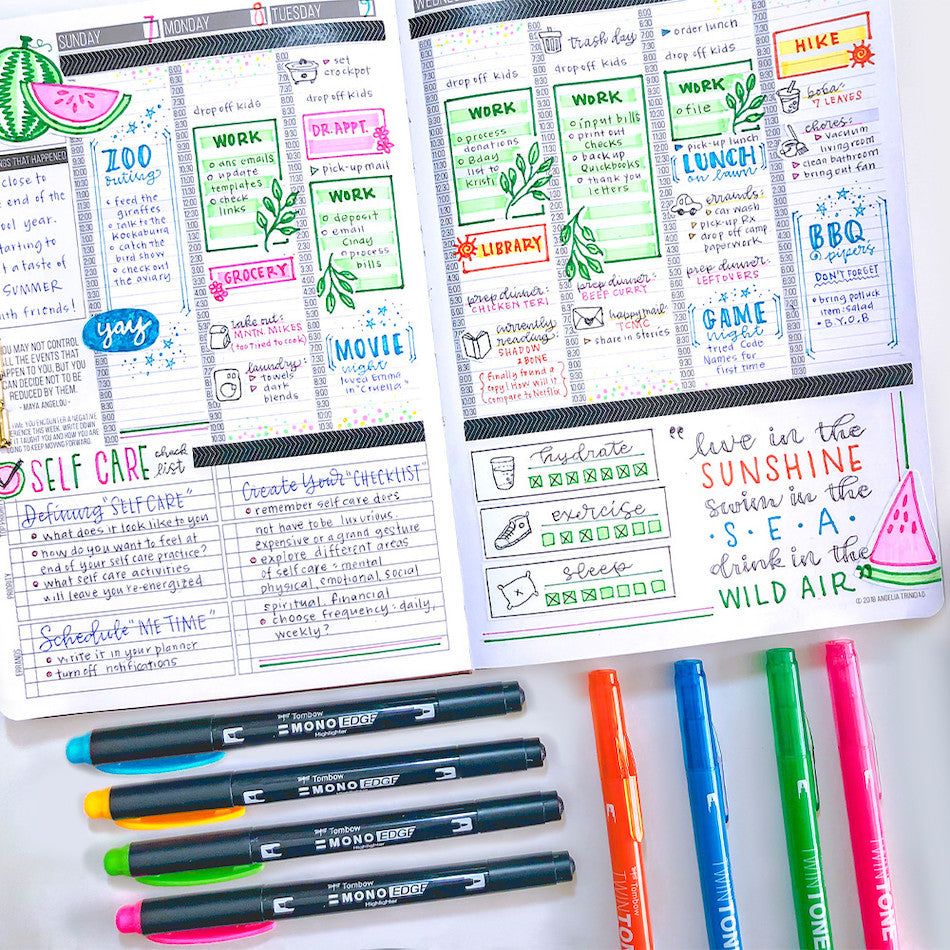 SUNDAY 7
MONDAY 8
TUESDAY 9
NGS THAT HAPPENED
close to
end of the
ool year.
tarting to
t a taste of
SUMMER
with friends!
YOU MAY NOT CONTROL
ALL THE EVENTS THAT
HAPPEN TO YOU, BUT YOU
CAN DECIDE NOT TO BE
REDUCED BY THEM.
- MAYA ANGELOU -
ZOO
outing
feed the
giraffes
talk to the
Kookaburra
catch the
bird show
check out
the aviary
yay
drop off kids
WORK
ans emails
update
templates
check
links
GROCERY
take out:
MNTN MIKES
(too tired to cook)
laundry:
towels
dark
blends
set
crockpot
drop off kids
DR. APPT.
pick-up mail
WORK
deposit
email
Cinay
process
bills
MOVIE
night
loved Emma
in "Cruella"
drop off kids
WORK
process
donations
Bday
list to
Kristi
LIBRARY
prep dinner:
CHICKEN TERI
currently
reading
SHADOW
& BONE
Finally found a
copy! How will it
compare to Netflix
trash day
drop off kids
WORK
input bills
print out
checks
backup
Quickbooks
thank you
letters
prep dinner:
BEEF CURRY
happy mail:
TCMC
share in stories
order lunch
drop off kids
WORK
file
pick-up lunch
LUNCH
on lawn
errands:
car wash
pick-up Rx
drop off camp
paperwork
prep dinner:
LEFTOVERS
GAME
night
tried Code
Names for
first time
HIKE
boba:
7 LEAVES
chores:
vacuum
living room
clean bathroom
bring out fan
BBQ
DON'T FORGET
bring potluck
item: salad
B.Y.O.B
SELF CARE check
list
Defining "SELF CARE"
what does it look like to you
how do you want to feel at
end of your self care practice?
what self care activities
will leave you re-energized
Schedule "ME TIME"
write it in your planner
turn off notifications
Create Your "CHECKLIST"
remember self care does
not have to be luxurious,
expensive or a grand gesture
explore different areas
of self care: mental
physical, emotional, social
spiritual, financial
choose frequency: daily,
weekly?
PRIORITY
ERRANDS
hydrate
exercise
sleep
"live in the
SUNSHINE
swim in the
·S·E·A·
drink in the
WILD AIR"
© 2018 ANGELIA TRINIDAD
Tombow
MONO EDGE
Highlighter
Tombow
MONO EDGE
Highlighter
Tombow
MONO EDGE
Highlighter
Tombow
MONO EDGE
Highlighter
Tombow TWINTONE
TWINTONE
TWINTONE
TWINTONE